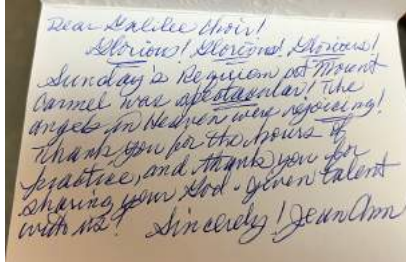 Dear Galilee Choir!
Glorious! Glorious! Glorious!
Sunday's Requiem at Mount
Carmel was spectacular! The
angels in Heaven were rejoicing!
Thank you for the hours of
practice, and thank you for
sharing your God-given talent
with us! Sincerely! Jean Ann